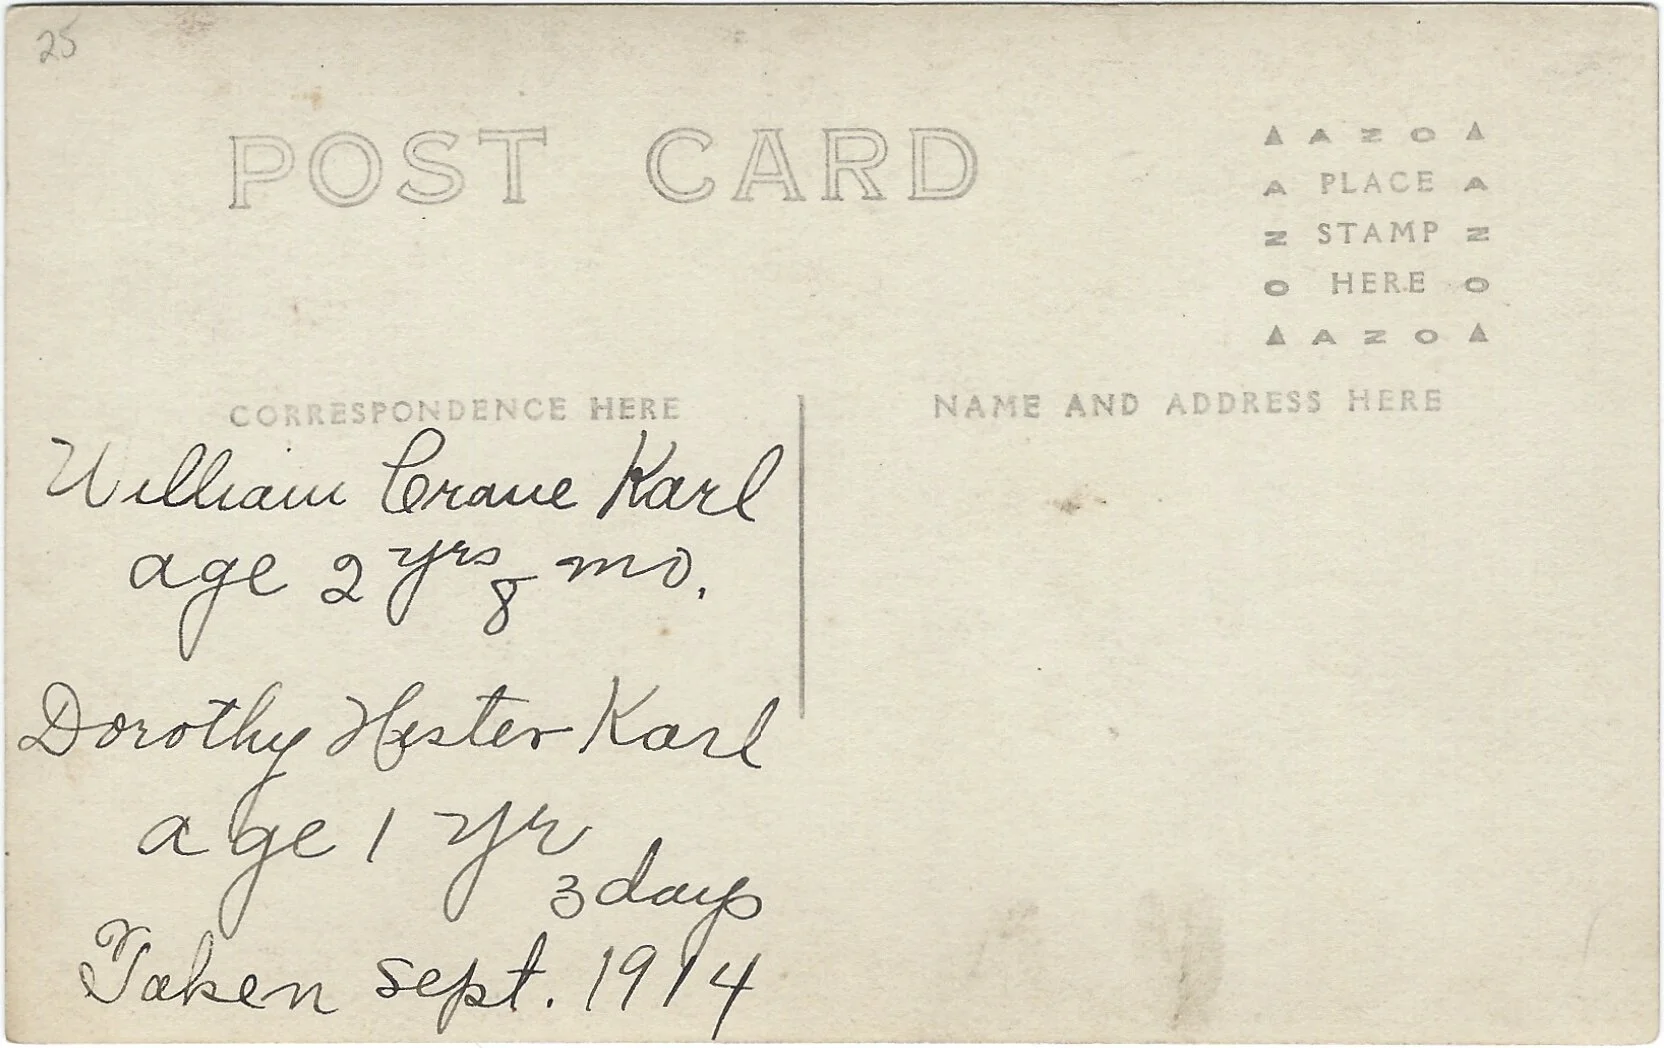 25
POST CARD
▲ A Z O ▲
A PLACE A
Z STAMP Z
O HERE O
▲ A Z O ▲
CORRESPONDENCE HERE
NAME AND ADDRESS HERE
William Crane Karl
age 2 yrs 8 mo.
Dorothy Hester Karl
age 1 yr
3 days
Taken Sept. 1914